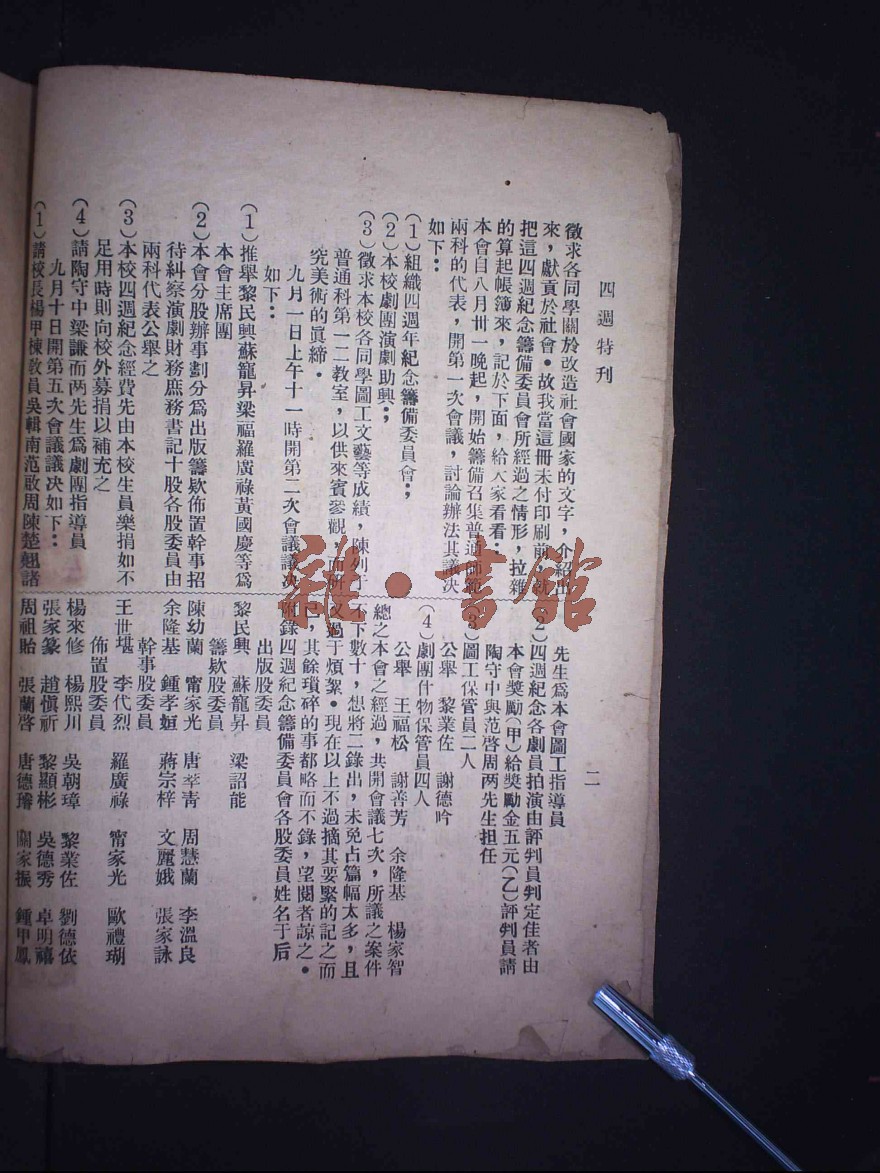 四週特刊
二
徵求各同學關於改造社會國家的文字，介紹出
來，獻貢於社會。故我當這冊未付印刷前，就
把這四週紀念籌備委員會所經過之情形，拉雜
的算起帳簿來，記於下面，給大家看看：
本會自八月卅一晚起，開始籌備召集普通師範
兩科的代表，開第一次會議，討論辦法其議决
如下：
（1）組織四週年紀念籌備委員會；
（2）本校劇團演劇助興；
（3）徵求本校各同學圖工文藝等成績，陳列于
普通科第一二教室，以供來賓參觀，而研
究美術的眞締。
九月一日上午十一時開第二次會議議决
如下：
（1）推舉黎民興蘇寵昇梁福羅廣祿黃國慶等爲
本會主席團
（2）本會分股辦事劃分爲出版籌欵佈置幹事招
待糾察演劇財務庶務書記十股各股委員由
兩科代表公舉之
（3）本校四週紀念經費先由本校生員樂捐如不
足用時則向校外募捐以補充之
（4）請陶守中梁謙而兩先生爲劇團指導員
九月十日開第五次會議議决如下：
（1）請校長楊甲棟教員吳輯南范啟周陳楚翹諸
先生爲本會圖工指導員
（2）四週紀念各劇員拍演由評判員判定佳者由
本會獎勵（甲）給獎勵金五元（乙）評判員請
陶守中與范啓周两先生担任
（3）圖工保管員二人
公舉　黎業佐　謝德吟
（4）劇團什物保管員四人
公舉　王福松　謝善芳　余隆基　楊家智
總之本會之經過，共開會議七次，所議之案件
不下數十，想將二錄出，未免占篇幅太多，且
又過于煩絮。現在以上不過摘其要緊的記之而
已，其餘瑣碎的事都略而不錄，望閱者諒之。
附錄四週紀念籌備委員會各股委員姓名于后
出版股委員
黎民興　蘇寵昇　梁詔能
籌欵股委員
陳幼蘭　甯家光　唐莘靑　周慧蘭　李溫良
余隆基　鍾孝姮　蔣宗梓　文麗娥　張家詠
幹事股委員
王世堪　李代烈　羅廣祿　甯家光　歐禮瑚
佈置股委員
楊來修　楊熙川　吳朝璋　黎業佐　劉德依
張家篆　趙愼祈　黎顯彬　吳德秀　卓明禧
周祖貽　張蘭啓　唐德璿　關家振　鍾甲鳳
雜·書館